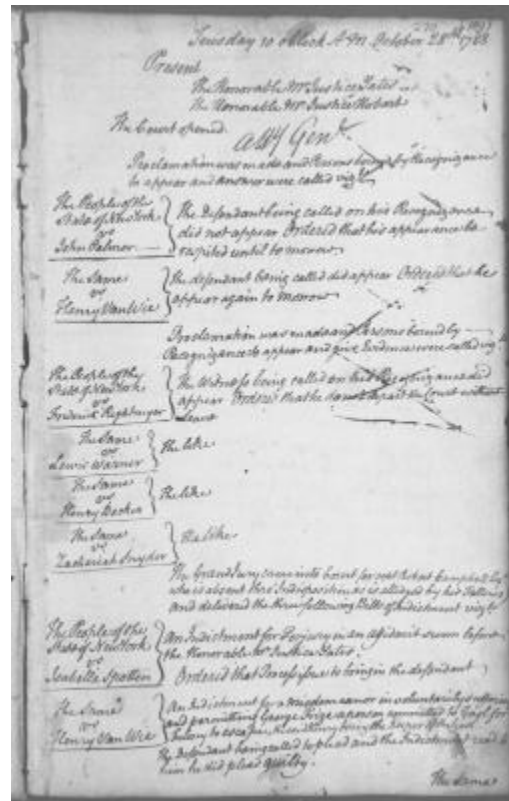 Tuesday 10 oClock A M October 28th 1788
Present
The Honorable Mr Justice Yates
The Honorable Mr Justice Hobart
The Court opened
Atty Genl
Proclamation was made and Persons bound by Recognizance
to appear and answer were called vizt
The People of the
State of New York
vs
John Palmer
The Defendant being called on his Recognizance
did not appear Ordered that his appearance be
respited until to morrow
The Same
vs
Henry Van Wie
The defendant being called did appear Ordered that he
appear again to morrow
Proclamation was made and Persons bound by
Recognizance to appear and give Evidence were called viz
The People of the
State of New York
vs
Frederick
The Witness being called on his Recognizance did
appear Ordered that he do not depart the Court without
Leave
The Same
vs
Lewis Warner
The like
The Same
vs
Henry Becker
The like
The Same
vs
Zachariah Snyder
The like
The Grand Jury came into Court Robert Campbell
who is absent thro Indisposition as is alledged by his Fellows
and delivered the three following Bills of Indictment vizt
The People of the
State of New York
vs
Isabella Spotten
An Indictment for Perjury in an affidavit sworn before
the Honorable Mr Justice Yates
Ordered that Process issue to bring in the defendant
The Same
vs
Henry Van Wie
An Indictment for a misdemeanor in voluntarily
and permitting George a person committed to Gaol for
to escape
The Defendant being called to plead and the Indictment read to
him he did plead guilty.
The Same